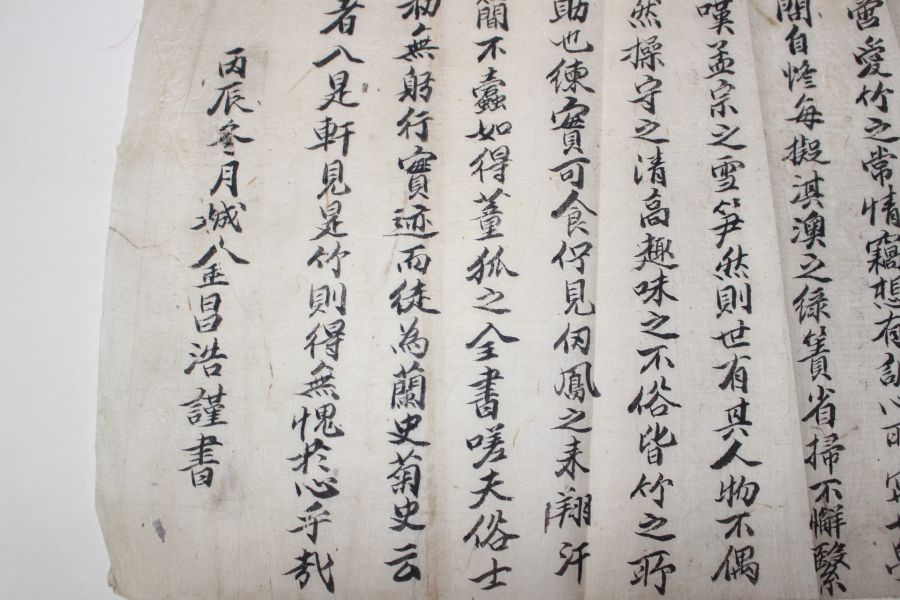 愛竹之常情竊想有
自修每擬淇澳之綠簀省掃不懈繄
嘆孟宗之雪笋然則世有其人物不偶
然操守之清高趣味之不俗皆竹之所
助也練實可食佇見仞鳳之来翔汗
不蠹如得董狐之全書嗟夫俗士
無躬行實迹而徒為蘭史菊史云
者入是軒見是竹則得無愧於心乎哉
丙辰冬月 金昌浩謹書